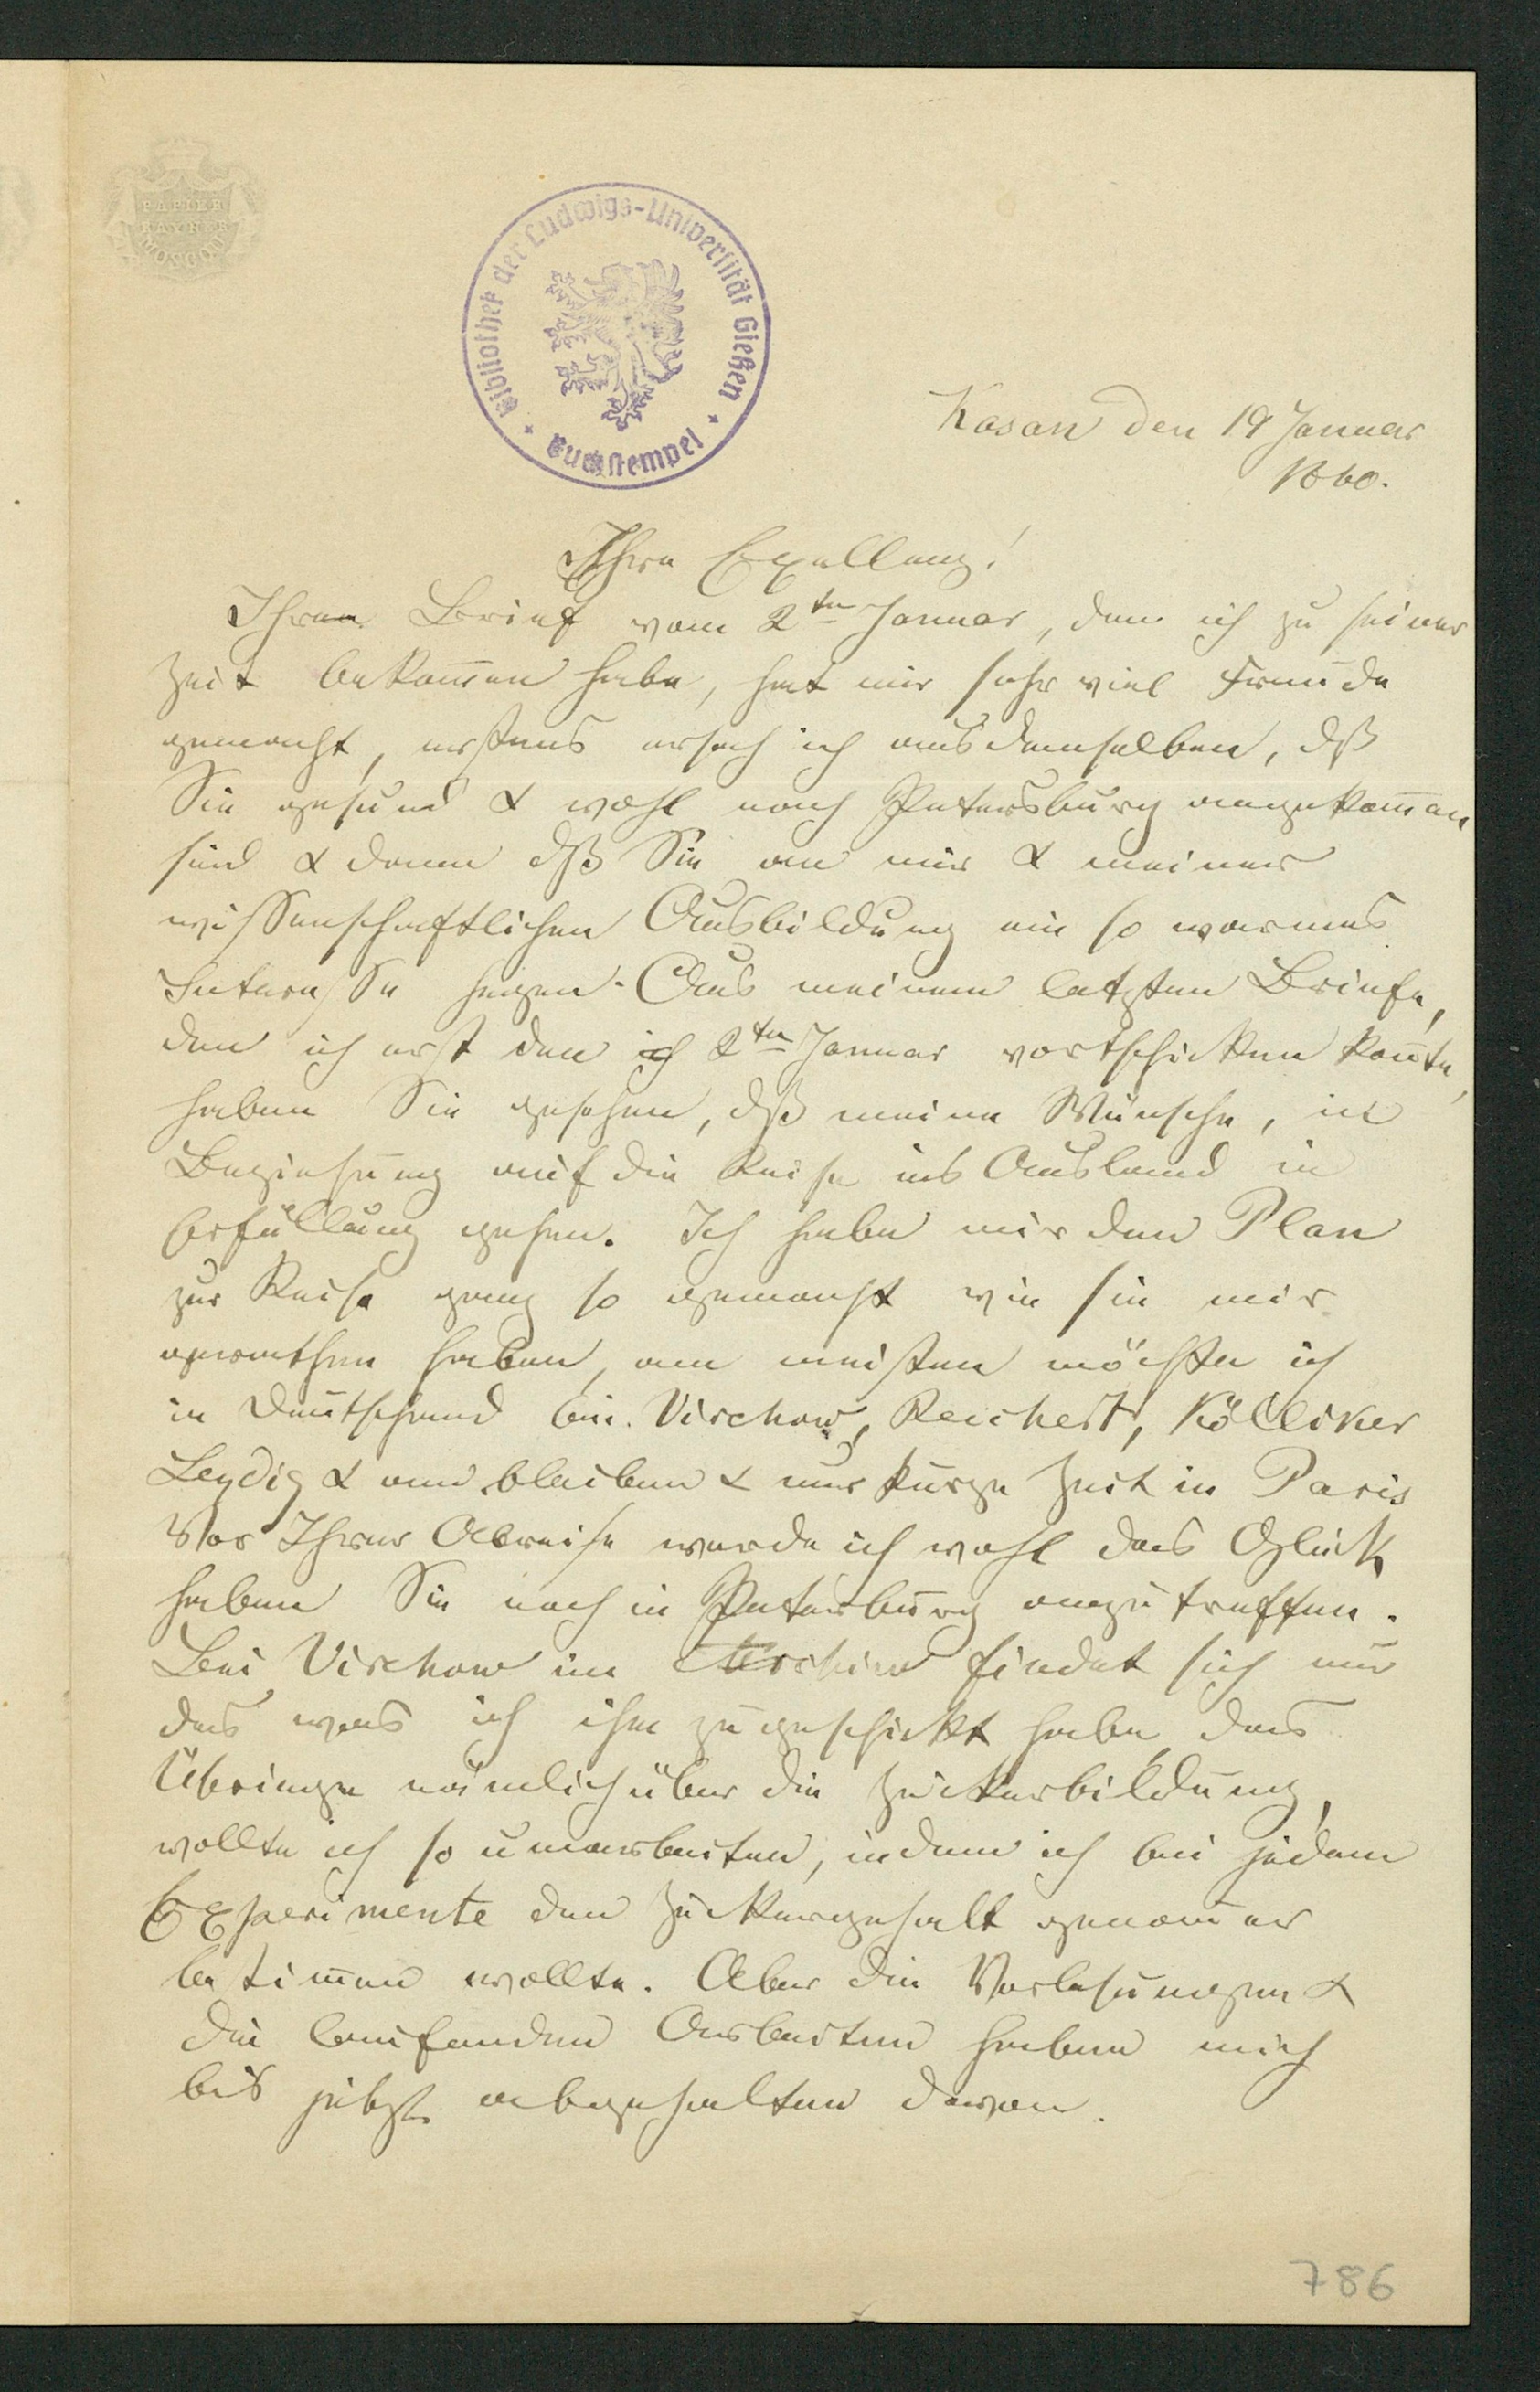 PAPIER
RAYNER
MOSCOU
Bibliothek der Ludwigs-Universität Gießen
Buchstempel
Kasan den 19 Januar
1860.
Ihre Exellenz!
Ihren Brief vom 2ten Januar, den ich zu seiner
Zeit bekom̄en habe, hat mir sehr viel Freude
gemacht, erstens ersah ich aus demselben, dß
Sie gesund & wohl nach Petersburg angekom̄en
sind & dann dß Sie an mir & meiner
wissenschaftlichen Ausbildung ein so warmes
Interesse hegen. Aus meinem letzten Briefe,
den ich erst den ich 2ten Januar vortschicken kon̄te,
haben Sie gesehen, dß meine Wünsche, in
Beziehung auf die Reise ins Ausland in
Erfüllung gehen. Ich habe mir den Plan
zur Reise ganz so gemacht wie sie mir
gerathen haben, am meisten möchte ich
in Deutschand bei Virchow, Reichert, Kölliker
Leydig & and. bleiben & nur kurze Zeit in Paris
Vor Ihrer Abreise werde ich wohl das Glück
haben Sie noch in Petersburg anzutreffen.
Bei Virchow im Archiw findet sich nur
das was ich ihm zugeschickt habe das
Übringe nämlich über die Zuckerbildung,
wollte ich so umarbeiten, indem ich bei jedem
Experimente den Zuckergehalt genauer
bestim̄en wollte. Aber die Vorlesungen &
die laufenden Arbeiten haben mich
bis jetzt abgehalten davon.
786